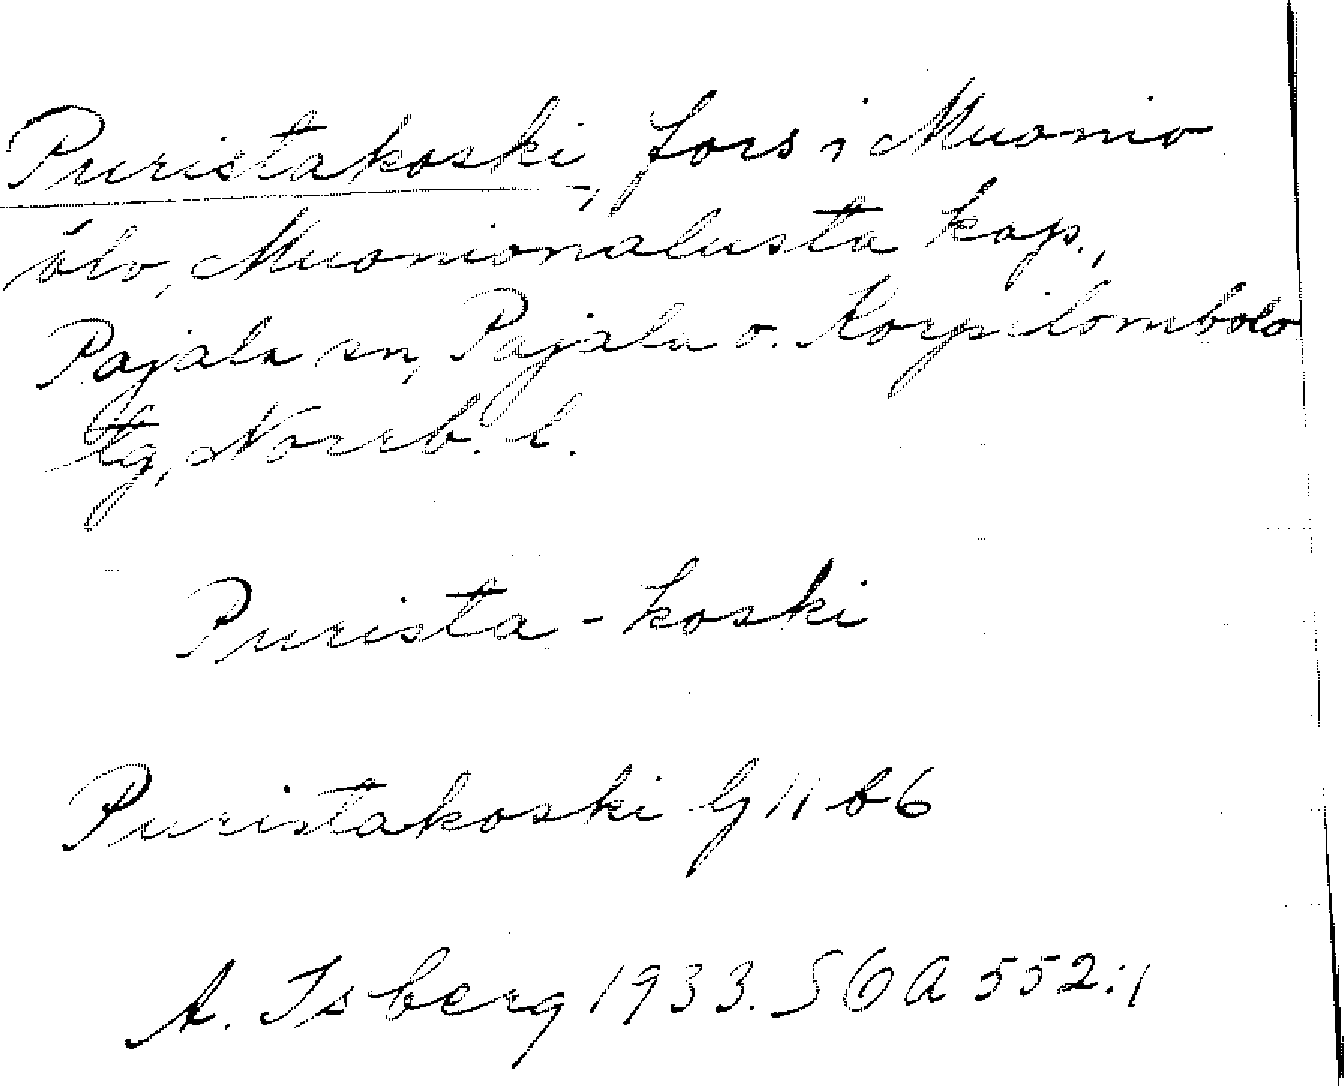 Puristakoski, fors i Muonio
älv, Muonionalusta kap.,
Pajala sn, Pajala o. Korpilombolo
tg, Norrb. l.
Purista-koski
Puristakoski G 11 b6
A. Isberg 1933. SOA 552:1